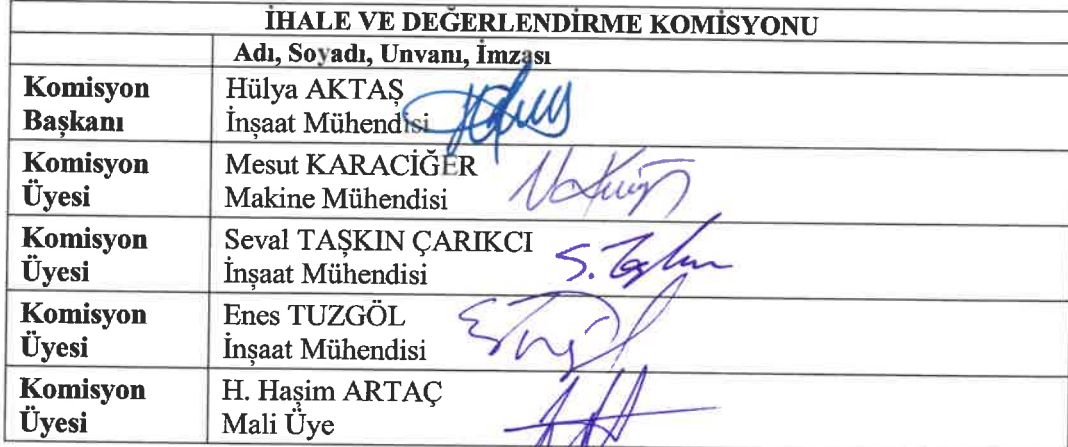 İHALE VE DEĞERLENDİRME KOMİSYONU
Adı, Soyadı, Unvanı, İmzası
Komisyon Başkanı
Hülya AKTAŞ
İnşaat Mühendisi
Komisyon Üyesi
Mesut KARACİĞER
Makine Mühendisi
Komisyon Üyesi
Seval TAŞKIN ÇARIKCI
İnşaat Mühendisi
S. Taşkın
Komisyon Üyesi
Enes TUZGÖL
İnşaat Mühendisi
Komisyon Üyesi
H. Haşim ARTAÇ
Mali Üye